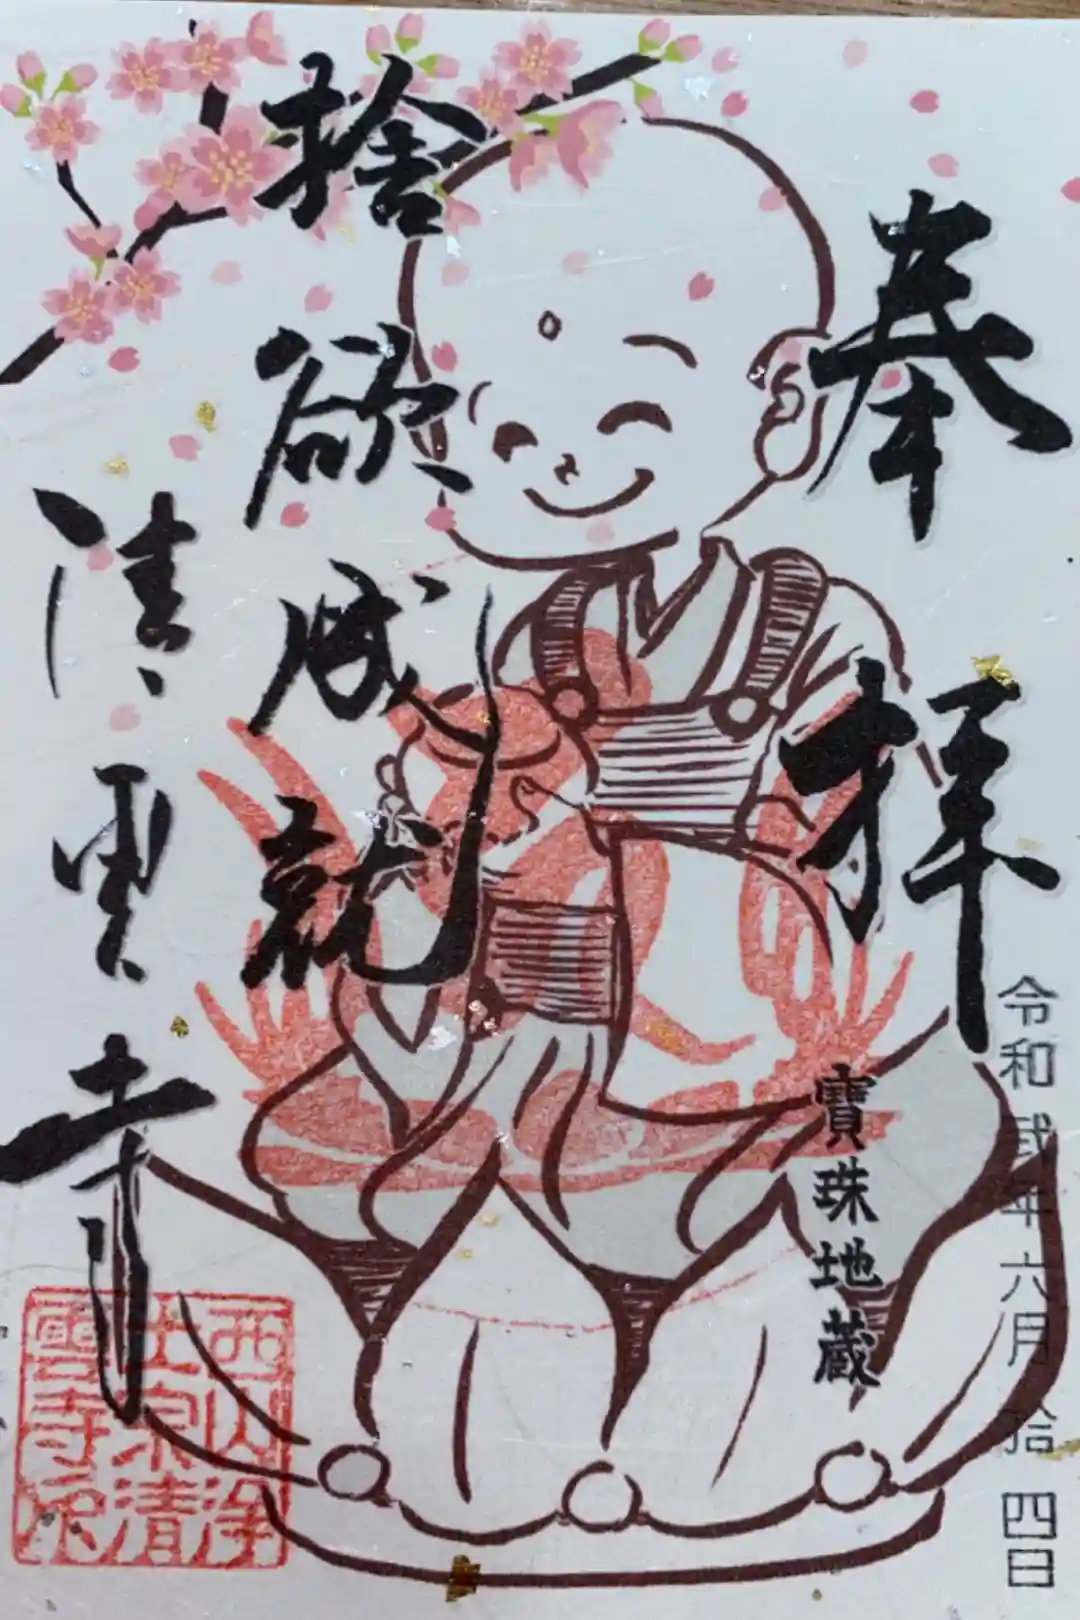 奉拝
令和弐年六月拾四日
寶珠地蔵
捨欲成就
清雲寺
西山浄
土宗清
雲寺印